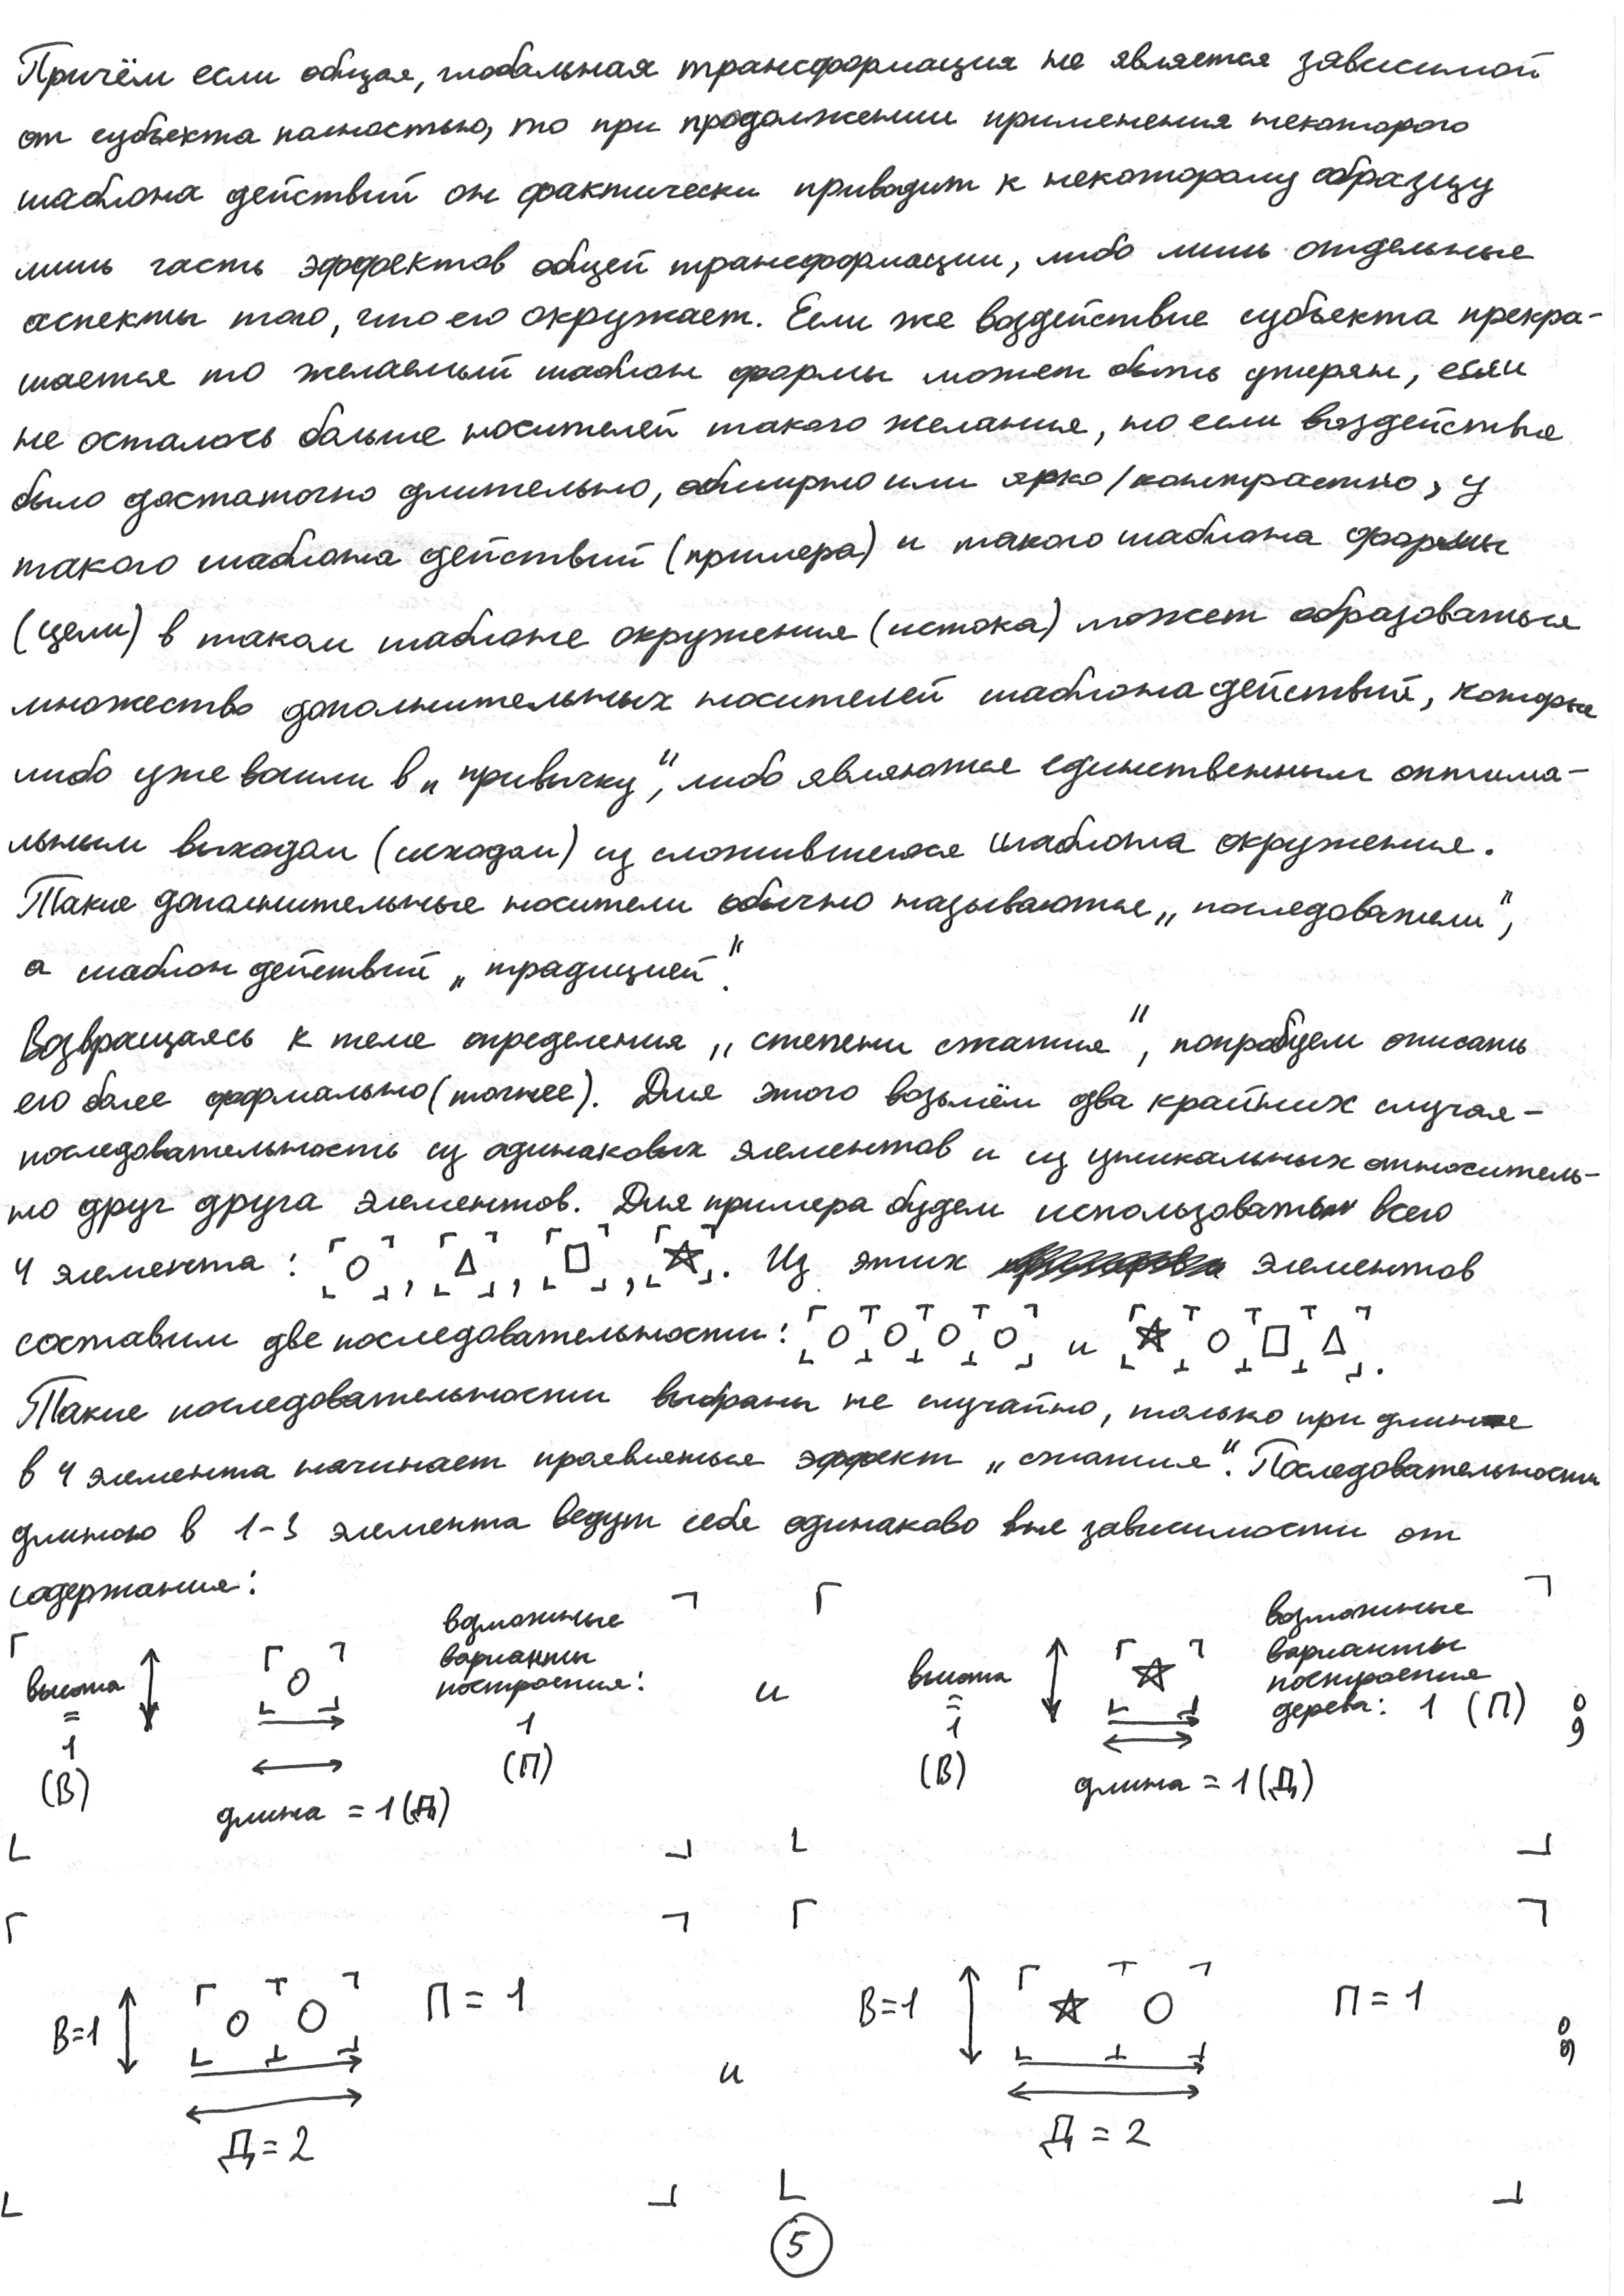 Причём если общая, глобальная трансформация не является зависимой
от субъекта полностью, то при продолжении применения некоторого
шаблона действий он фактически приводит к некоторому образцу
лишь часть эффектов общей трансформации, либо лишь отдельные
аспекты того, что его окружает. Если же воздействие субъекта прекра-
щается то желаемый шаблон формы может быть утерян, если
не осталось больше носителей такого желания, но если воздействие
было достаточно длительно, обширно или ярко/контрастно, у
такого шаблона действий (примера) и такого шаблона формы
(цели) в таком шаблоне окружения (истока) может образоваться
множество дополнительных носителей шаблона действий, которые
либо уже вошли в „привычку“, либо являются единственным оптима-
льным выходом (исходом) из сложившегося шаблона окружения.
Такие дополнительные носители обычно называются „последователи“,
а шаблон действий „традицией“.
Возвращаясь к теме определения „степени сжатия“, попробуем описать
его более формально (точнее). Для этого возьмём два крайних случая -
последовательность из одинаковых элементов и из уникальных относитель-
но друг друга элементов. Для примера будем использовать всего
4 элемента: ○, △, □, ☆. Из этих элементов
составим две последовательности: ○ ○ ○ ○ и ☆ ○ □ △.
Такие последовательности выбраны не случайно, только при длине
в 4 элемента начинает проявляться эффект „сжатия“. Последовательности
длиною в 1-3 элемента ведут себя одинаково вне зависимости от
содержания:
высота = 1 (В) ○ длина = 1 (Д) возможные варианты построения: 1 (П)
и
высота = 1 (В) ☆ длина = 1 (Д) возможные варианты построения дерева: 1 (П) ;
В=1 ○ ○ П = 1
Д = 2
и
В=1 ☆ ○ П = 1
Д = 2
5